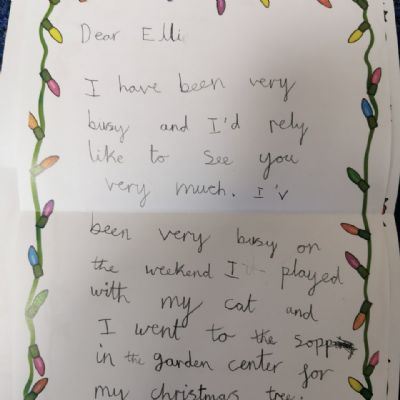 Dear Elli
I have been very
busy and I'd rely
like to see you
very much. I'v
been very busy on
the weekend I played
with my cat and
I went to the sopp
in the garden center for
my christmas tree.